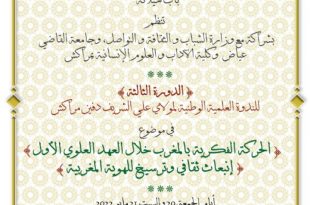 تنظم
بشراكة مع وزارة الشباب والثقافة والتواصل، وجامعة القاضي
عياض وكلية الآداب والعلوم الإنسانية بمراكش
الدورة الثالثة
للندوة العلمية الوطنية لمولاي علي الشريف دفين مراكش
في موضوع
الحركة الفكرية بالمغرب خلال العهد العلوي الأول
إنبعاث ثقافي وترسيخ للهوية المغربية